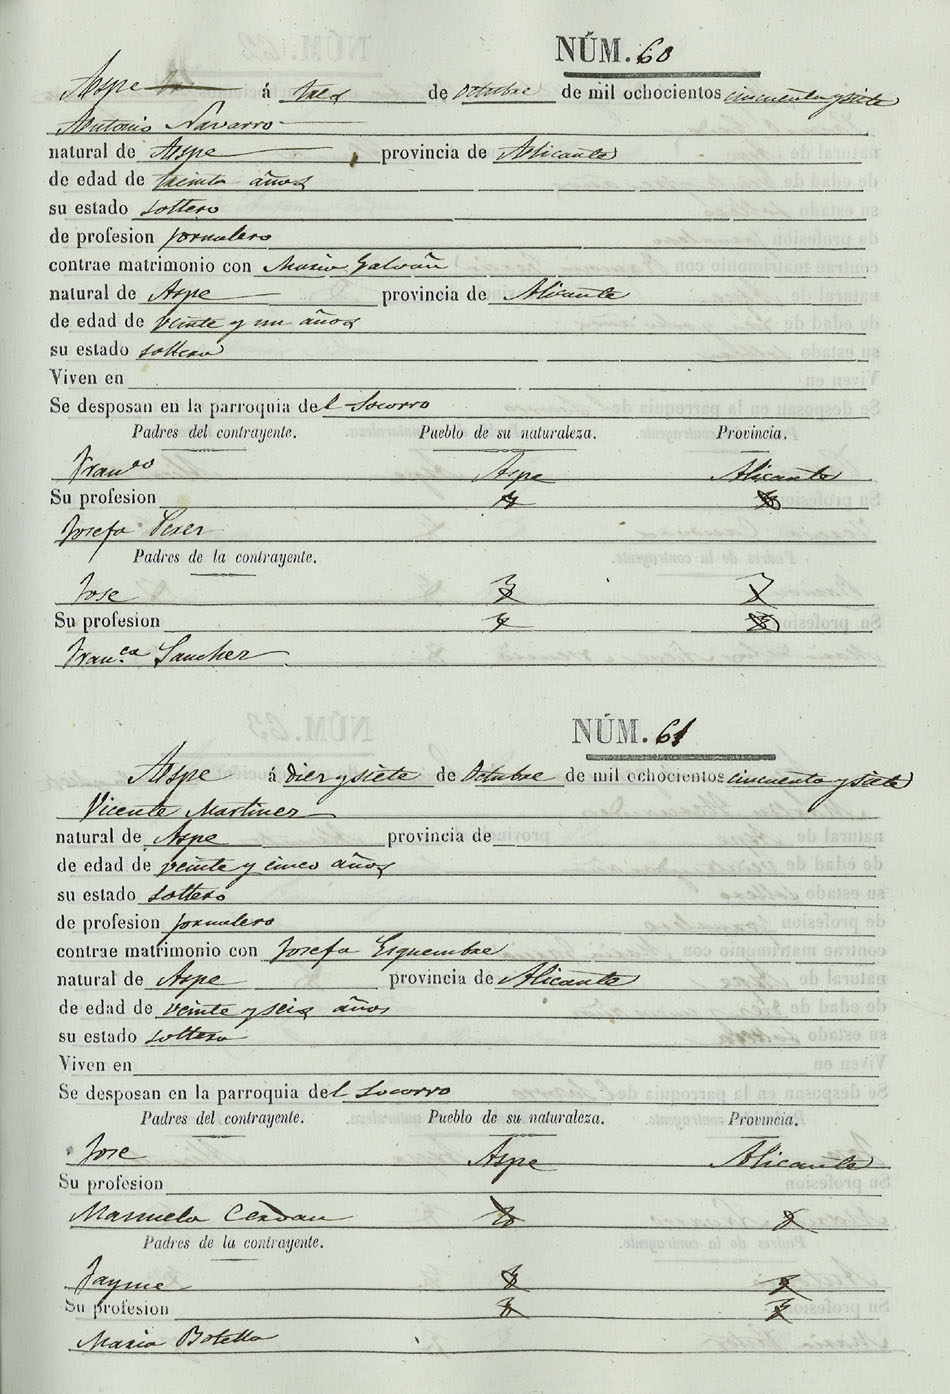 NÚM. 60
Aspe á tres de Octubre de mil ochocientos cincuenta y siete
Antonio Navarro
natural de Aspe provincia de Alicante
de edad de treinta años
su estado soltero
de profesion jornalero
contrae matrimonio con Maria Galvañ
natural de Aspe provincia de Alicante
de edad de veinte y un años
su estado soltera
Viven en
Se desposan en la parroquia del Socorro
Padres del contrayente. Pueblo de su naturaleza. Provincia.
Fran.co Aspe Alicante
Su profesion
Josefa
Padres de la contrayente.
Jose
Su profesion
Fran.ca Sanchez
NÚM. 61
Aspe á diez y siete de Octubre de mil ochocientos cincuenta y siete
Vicente Martinez
natural de Aspe provincia de
de edad de veinte y cinco años
su estado soltero
de profesion jornalero
contrae matrimonio con Josefa Esquembre
natural de Aspe provincia de Alicante
de edad de veinte y seis años
su estado soltera
Viven en
Se desposan en la parroquia del Socorro
Padres del contrayente. Pueblo de su naturaleza. Provincia.
Jose Aspe Alicante
Su profesion
Manuela Cerdan
Padres de la contrayente.
Jayme
Su profesion
Maria Botella